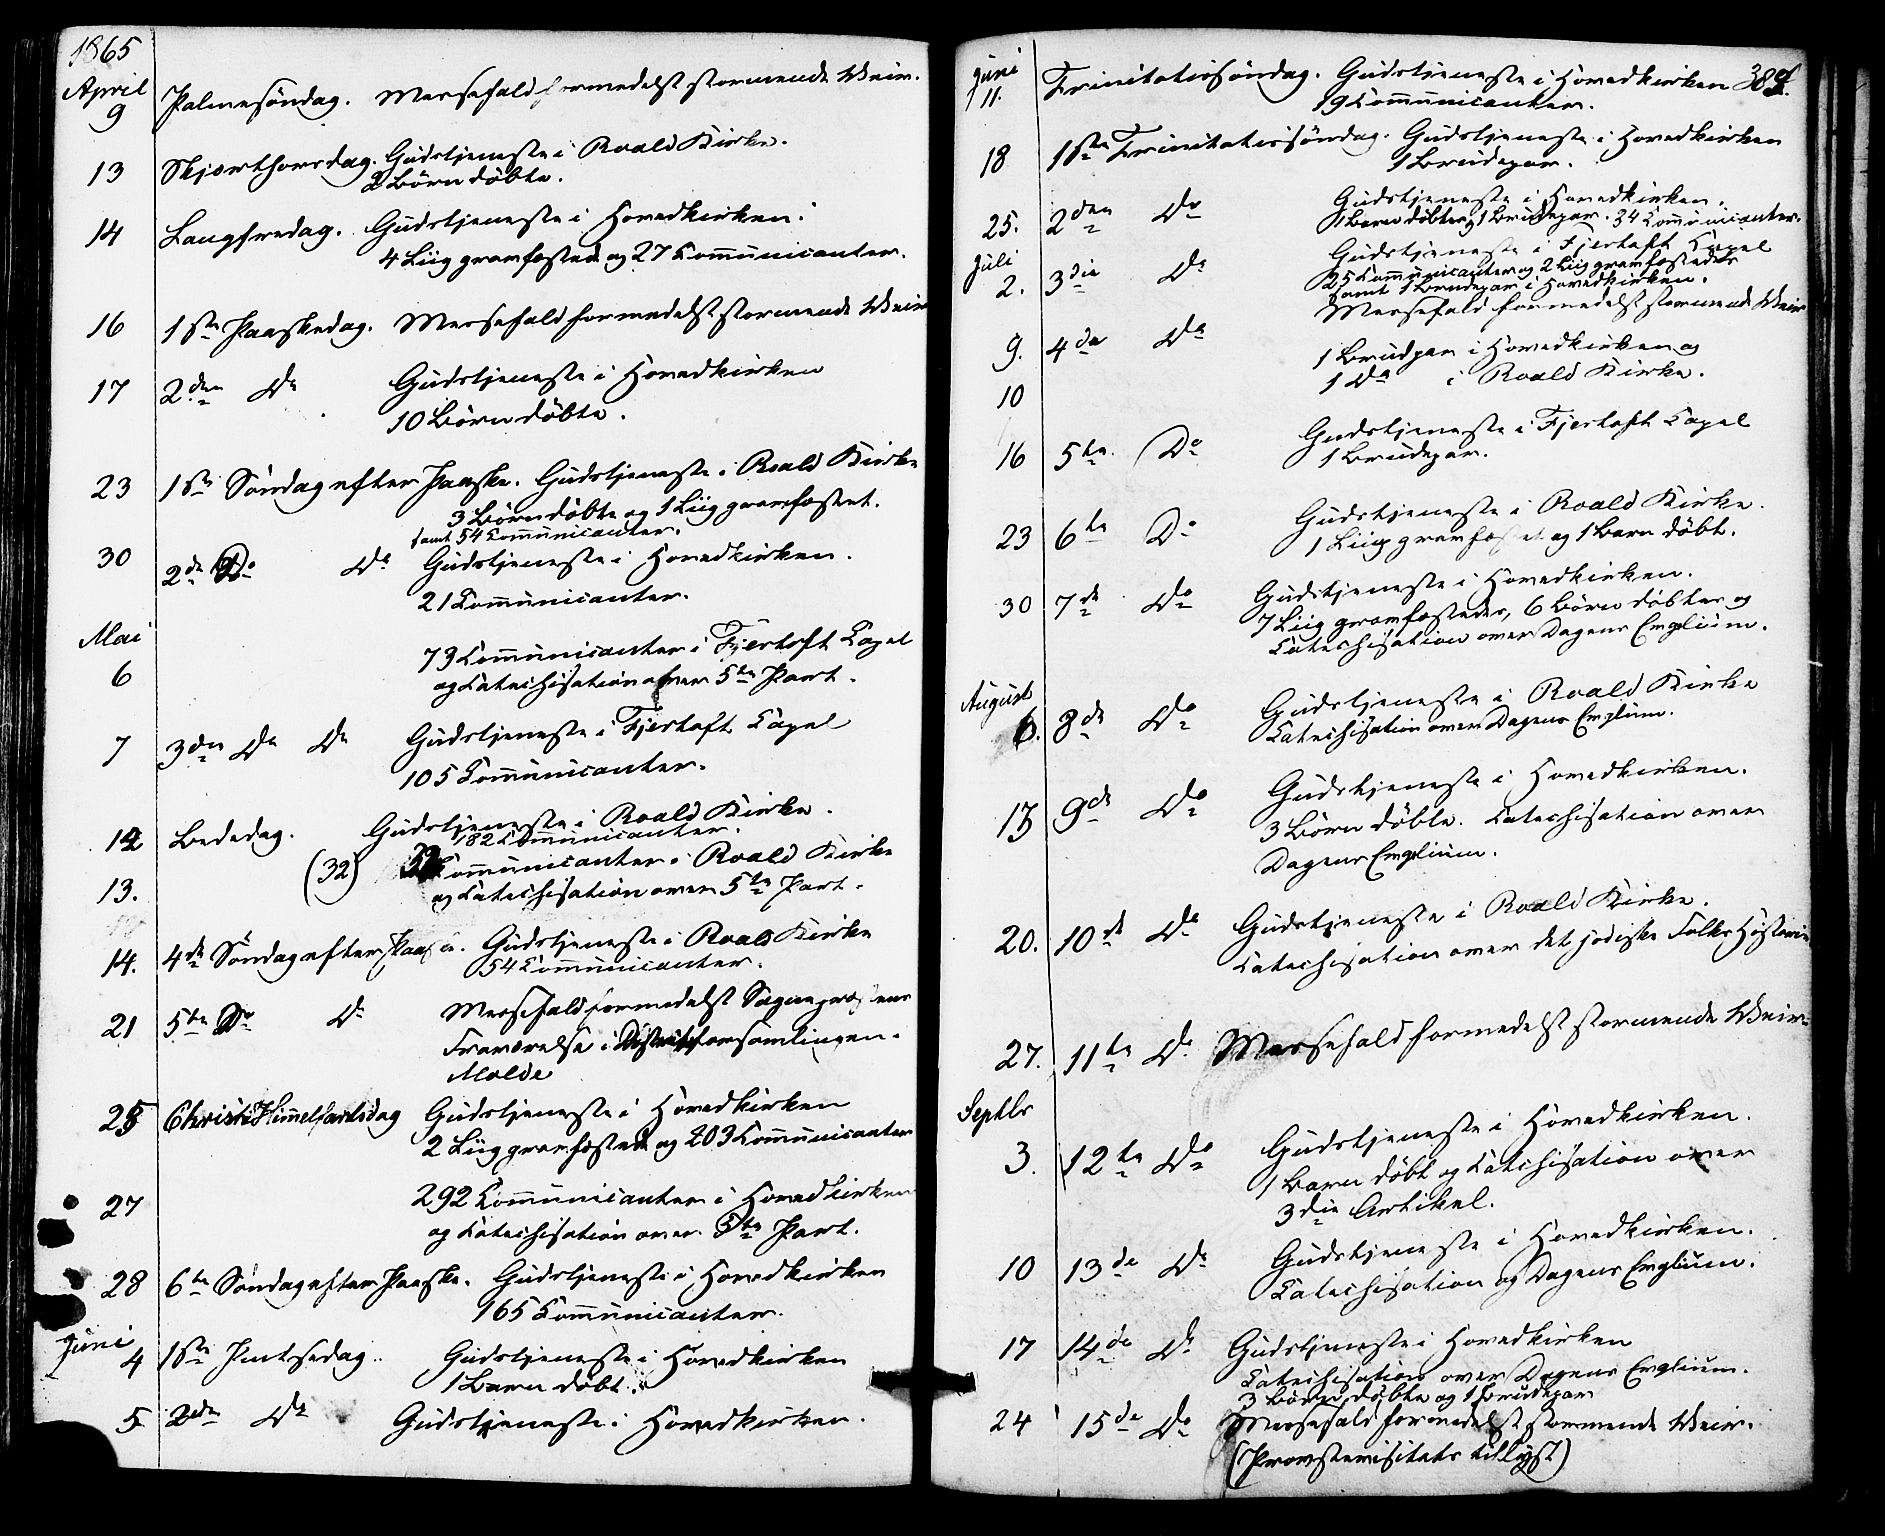 1865
April
9 Palmesöndag. Messefald formedelst stormende Veir.
13 Skjærthorsdag. Gudstjeneste i Roald Kirke.
2 Börn döbte.
14 Langfredag. Gudstjeneste i Hovedkirken.
4 Liig gramfæstede og 27 Communicanter.
16 1ste Paaskedag. Messefald formedelst stormende Veir
17 2den Do Gudstjeneste i Hovedkirken
10 Börn döbte.
23 1ste Söndag efter Paaske. Gudstjeneste i Roald Kirke
3 Börn döbte og 1 Liig gramfæstet.
samt 54 Communicanter.
30 2de Do Do Gudstjeneste i Hovedkirken.
21 Communicanter.
Mai
6 73 Communicanter i Fjertoft Capel
og Catechisation over 5te Part.
7 3die Do Do Gudstjeneste i Fjertoft Capel
105 Communicanter.
12 Bededag. Gudstjeneste i Roald Kirke.
182 Communicanter.
13. (32) Communicanter i Roald Kirke
og Catechisation over 5te Part.
14. 4de Söndag efter Paaske. Gudstjeneste i Roald Kirke
54 Communicanter.
21 5te Do Do Messefald formedelst Sognepræstens
Fraværelse i Distriktsforsamlingen.
Molde
25 Christi Himmelfartsdag Gudstjeneste i Hovedkirken
2 Liig gramfæstede og 203 Communicanter
27 292 Communicanter i Hovedkirken
og Catechisation over 5te Part.
28 6te Söndag efter Paaske. Gudstjeneste i Hovedkirken
165 Communicanter.
Juni
4 1ste Pintsedag. Gudstjeneste i Hovedkirken
1 Barn döbt.
5 2den Do Gudstjeneste i Hovedkirken.
Juni 384.
11. Trinitatissöndag. Gudstjeneste i Hovedkirken
19 Communicanter.
18 1ste Trinitatissöndag. Gudstjeneste i Hovedkirken
1 Brudepar.
25. 2den Do Gudstjeneste i Hovedkirken.
1 Barn döbt og 1 Brudepar. 34 Communicanter.
Juli
2. 3die Do Gudstjeneste i Fjertoft Capel
25 Communicanter og 2 Liig gramfæstedes
samt 1 Brudepar i Hovedkirken.
9. 4de Do Messefald formedelst stormende Veir
10 1 Brudpar i Hovedkirken og
1 Do i Roald Kirke.
16 5te Do Gudstjeneste i Fjertoft Capel
1 Brudepar.
23 6te Do Gudstjeneste i Roald Kirke.
1 Liig gramfæstet og 1 Barn döbt.
30 7de Do Gudstjeneste i Hovedkirken.
7 Liig gramfæstedes, 6 Börn döbtes og
Catechisation over Dagens Emglium.
August
6. 8de Do Gudstjeneste i Roald Kirke
Catechisation over Dagens Emglium.
13 9de Do Gudstjeneste i Hovedkirken.
3 Börn döbte. Catechisation over
Dagens Emglium.
20. 10de Do Gudstjeneste i Roald Kirke.
Catechisation over det jödiske Folks Historie
27. 11te Do Messefald formedelst stormende Veir.
Septbr
3. 12te Do Gudstjeneste i Hovedkirken.
1 Barn döbt og Catechisation over
3die Artikel.
10 13de Do Gudstjeneste i Hovedkirken.
Catechisation og Dagens Emglium.
17 14de Do Gudstjeneste i Hovedkirken
Catechisation over Dagens Emglium.
3 Börn döbte og 1 Brudepar
24 15de Do Messefald formedelst stormende Veir.
(Provstevisitats tillyst)